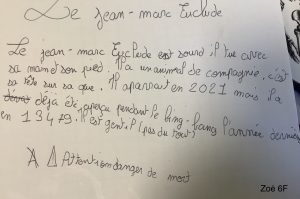 Le Jean-marc Euclude
Le jean-marc Euclude est sourd il tue avec
sa main et son pied. Il a un animal de compagnie, c'est
sa tête sur sa que. Il aparrait en 2021 mais l'a
déja été aperçu pendant le bing-bang l'année dernière
en 13479. Il est gentil (pas du tout)
Attention danger de mort
Zoé 6F